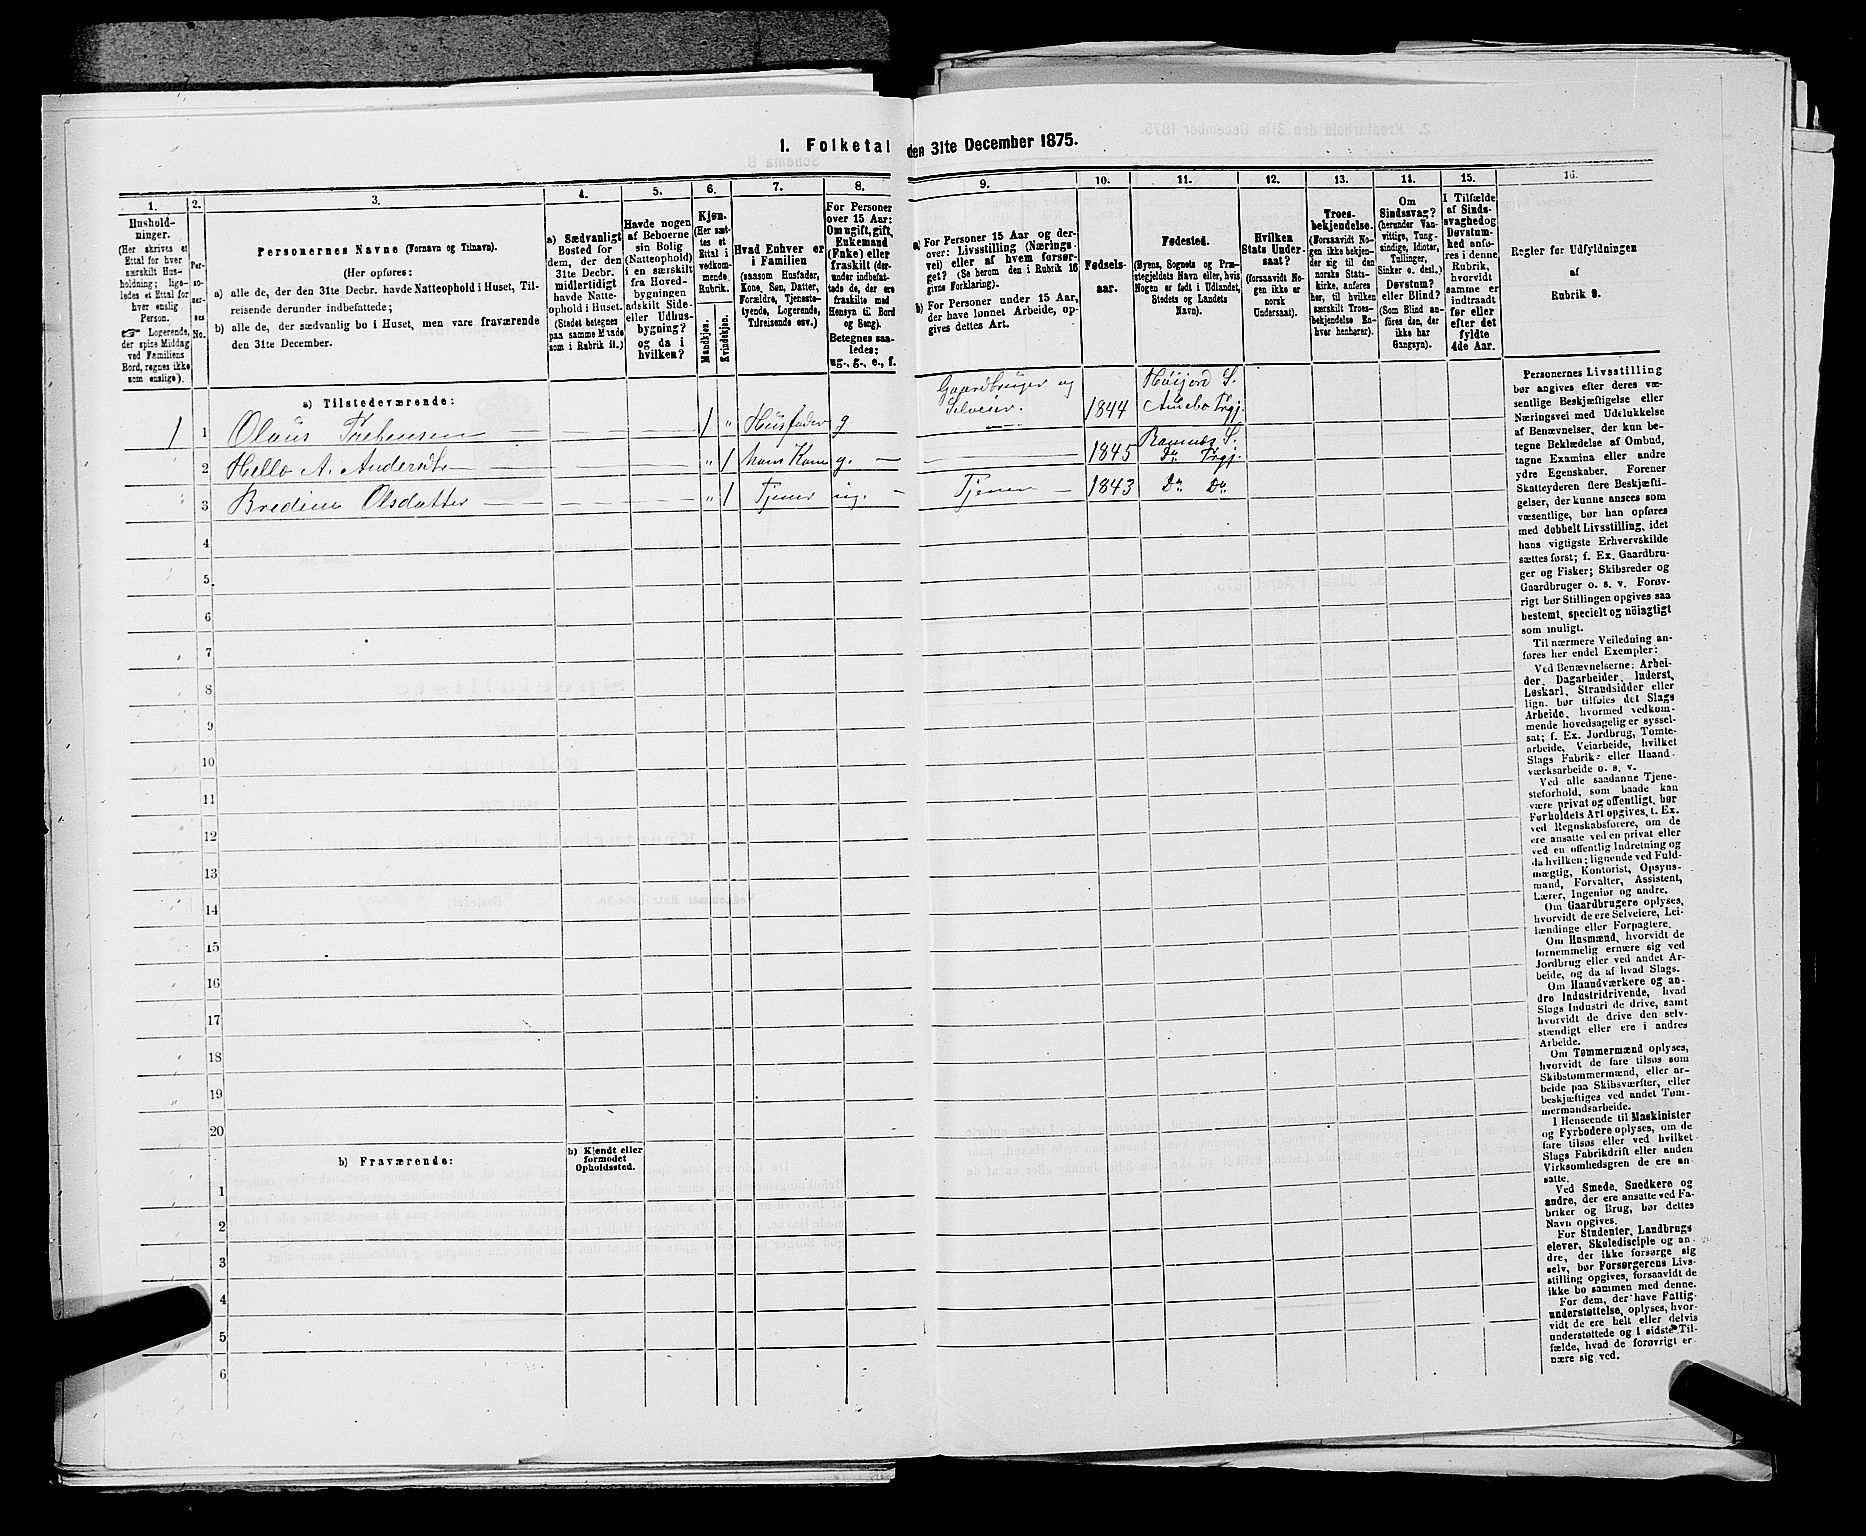 1. Folketal den 31te December 1875.
1.
Hushold-
ninger.
(Her skrives et
Ettal for hver
særskilt Hus-
holdning; lige-
ledes et Ettal for
hver enslig
Person.
☞ Logerende,
der spise Middag
ved Familiens
Bord, regnes ikke
som enslige).
2.
Per-
so-
ner-
nes
No.
3.
Personernes Navne (Fornavn og Tilnavn).
(Her opføres:
a) alle de, der den 31te Decbr. havde Natteophold i Huset, Til-
reisende derunder indbefattede;
b) alle de, der sædvanlig bo i Huset, men vare fraværende
den 31te December.
4.
a) Sædvanligt
Bosted for
dem, der den
31te Decbr.
midlertidigt
havde Natte-
ophold i Huset.
(Stedet betegnes
paa samme Maade
som i Rubrik 11.)
5.
Havde nogen
af Beboerne
sin Bolig
(Natteophold)
i en særskilt
fra Hoved-
bygningen
adskilt Side-
eller Udhus-
bygning?
og da i
hvilken?
6.
Kjøn.
(Her sæt-
tes et
Ettal i
vedkom-
mende
Rubrik.
Mandkjøn.
Kvindekjøn.
7.
Hvad Enhver er
i Familien
(saasom Husfader,
Kone, Søn, Datter,
Forældre, Tjeneste-
tyende, Logerende,
Tilreisende osv.)
8.
For Personer
over 15 Aar:
Om ugift, gift,
Enkemand
(Enke) eller
fraskilt (der-
under indbefat-
tede de, der ere
fraskilte med
Hensyn til Bord
og Seng).
Betegnes saa-
ledes:
ug., g., e., f.
9.
a) For Personer 15 Aar og der-
over: Livsstilling (Nærings-
vei) eller af hvem forsør-
get? (Se herom den i Rubrik 16
givne Forklaring).
b) For Personer under 15 Aar,
der have lønnet Arbeide, op-
gives dettes Art.
10.
Fødsels-
aar.
11.
Fødested.
(Byens, Sognets og Præ-
stegjeldets Navn eller, hvis
Nogen er født i Udlandet,
Stedets og Landets
Navn).
12.
Hvilken
Stats Under-
saat?
(forsaavidt No-
gen ikke er
norsk
Undersaat).
13.
Troes-
bekjendelse.
(Forsaavidt No-
gen ikke bekjen-
der sig til den
norske Stats-
kirke, anføres
her, til hvilken
særskilt Troes-
bekjendelse En-
hver henhører).
14.
Om
Sindssvag?
(herunder Van-
vittige, Tung-
sindige, Idioter,
Tullinger,
Sinker o. desl.)
Døvstum?
eller Blind?
(Som Blind an-
føres den, der
ikke har
Gangsyn).
15.
I Tilfælde
af Sinds-
svaghed og
Døvstum-
hed anfø-
res i denne
Rubrik,
hvorvidt
samme er
indtraadt
før eller
efter det
fyldte
4de Aar.
16.
Regler for Udfyldningen
af
Rubrik 9.
a) Tilstedeværende:
1 1 Olaus 1 „ Husfader g Gaardbruger og Selveier. 1844 Høijord S. Trgj.
2 Helle A. Andersdtr „ 1 hans Kone g. 1845 Ramnæs S. Do Trgj.
3 Bredine Olsdatter „ 1 Tjener ug. Tjener 1843 Do Do
4
5
6
7
8
9
10
11
12
13
14
15
16
17
18
19
20
b) Fraværende:
b) Kjendt eller
formodet
Opholdssted.
1
2
3
4
5
6
Personernes Livsstilling
bør angives efter deres væ-
sentlige Beskjæftigelse eller
Næringsvei med Udelukkelse
af Benævnelser, der kun be-
tegne Beklædelse af Ombud,
tagne Examina eller andre
ydre Egenskaber. Forener
Skatteyderen flere Beskjæfti-
gelser, der kunne ansees som
væsentlige, bør han opføres
med dobbelt Livsstilling, idet
hans vigtigste Erhvervskilde
sættes først; f. Ex. Gaardbru-
ger og Fisker; Skibsreder og
Gaardbruger o. s. v. Forøv-
rigt bør Stillingen opgives saa
bestemt, specielt og nöiagtigt
som muligt.
Til nærmere Veiledning an-
føres her endel Exempler:
Ved Benævnelserne: Arbei-
der, Dagarbeider, Inderst,
Løskarl, Strandsidder eller
lign. bør tilføies det Slags
Arbeide, hvormed vedkom-
mende hovedsagelig er syssel-
sat; f. Ex. Jordbrug, Tomte-
arbeide, Veiarbeide, hvilket
Slags Fabrik- eller Haand-
værksarbeide o. s. v.
Ved alle saadanne Tjene-
steforhold, som baade kan
være privat og offentligt, bør
Forholdets Art opgives, t. Ex.
ved Regnskabsførere, om de
ere ansatte ved en privat eller
ved en offentlig Indretning og
da hvilken; lignende ved Fuld-
mægtig, Kontorist, Opsyns-
mand, Forvalter, Assistent,
Lærer, Ingeniør og andre.
Om Gaardbrugere oplyses,
hvorvidt de ere Selveiere, Lei-
lændinge eller Forpagtere.
Om Husmænd, hvorvidt de
fornemmelig ernære sig ved
Jordbrug eller ved andet Ar-
beide, og da af hvad Slags.
Om Haandværkere og an-
dre Industridrivende, hvad
Slags Industri de drive, samt
hvorvidt de drive den selv-
stændigt eller ere i andres
Arbeide.
Om Tømmermænd oplyses,
hvorvidt de fare tilsøs som
Skibstømmermænd, eller ar-
beide paa Skibsværfter, eller
beskjæftiges ved andet Tøm-
mermandsarbeide.
I Henseende til Maskinister
og Fyrbødere oplyses, om de
fare tilsøs eller ved hvilket
Slags Fabrikdrift eller anden
Virksomhedsgren de ere an-
satte.
Ved Smede, Snedkere og
andre, der ere ansatte ved Fa-
briker og Brug, bør dettes
Navn opgives.
For Studenter, Landbrugs-
elever, Skoledisciple og an-
dre, der ikke forsørge sig
selv, bør Forsørgerens Livs-
stilling opgives, forsaavidt de
ikke bo sammen med denne.
For dem, der have Fattig-
understøttelse, oplyses, hvor-
vidt de ere helt eller delvis
understøttede og i sidste Til-
fælde, hvad de forøvrigt er-
nære sig ved.